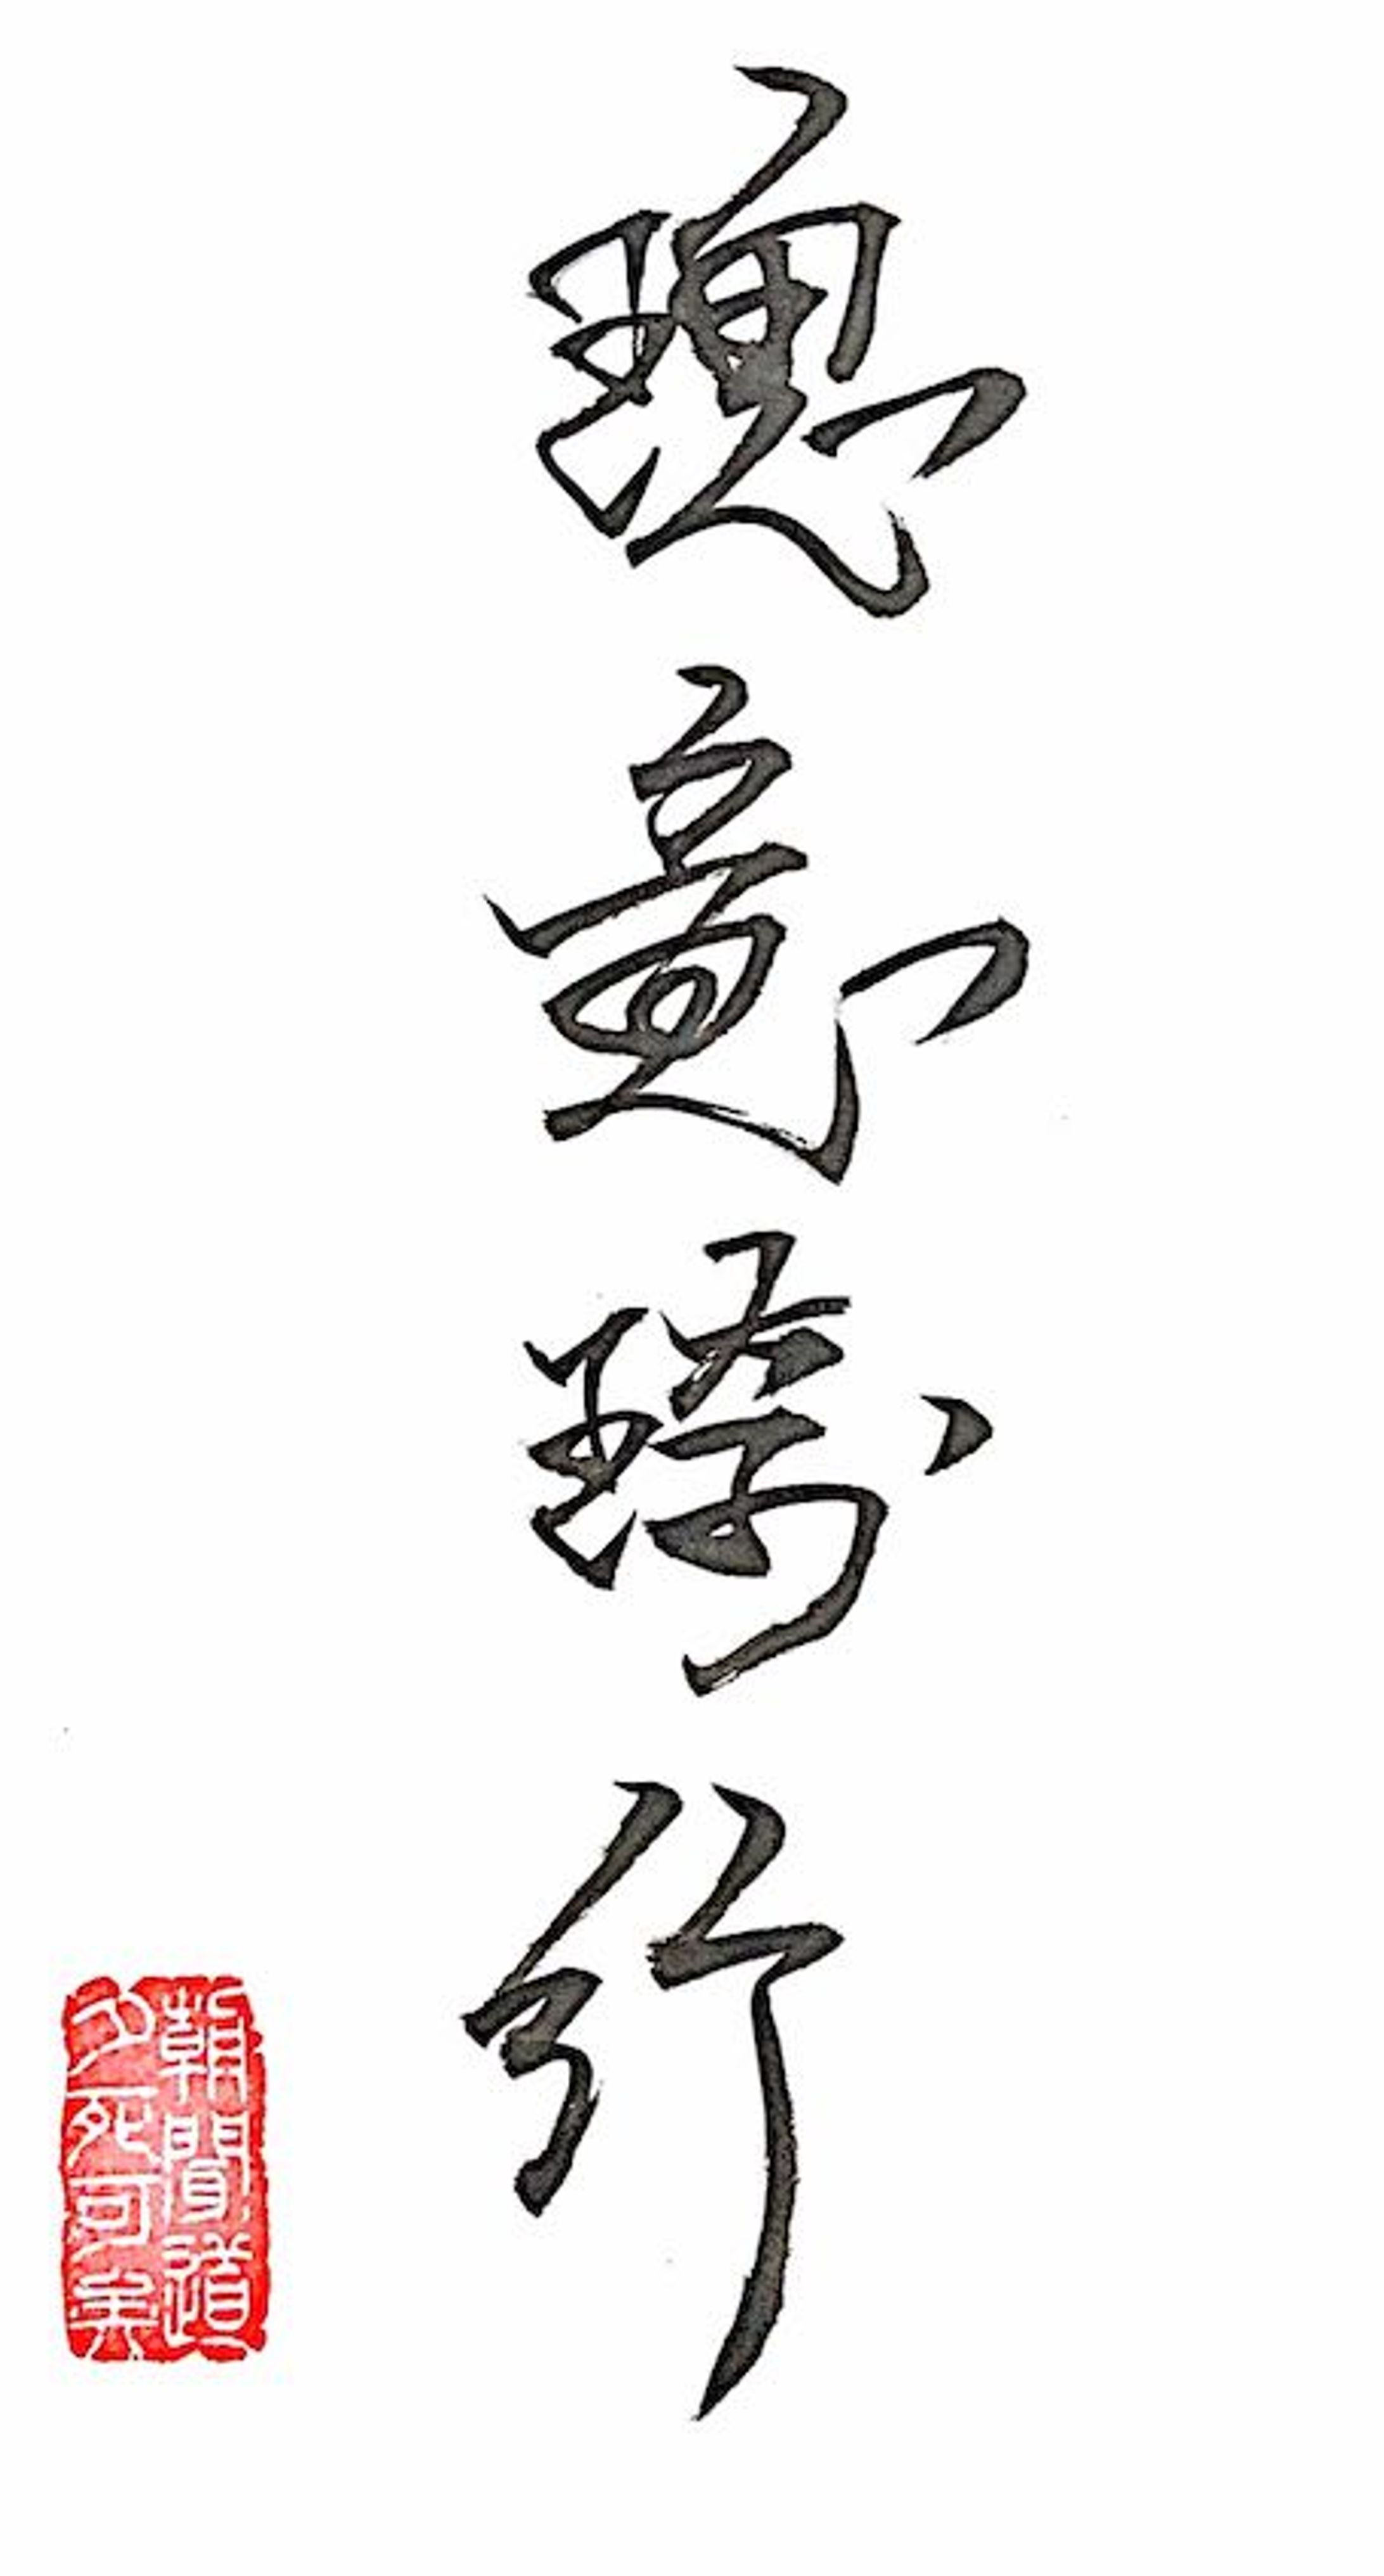 瑰意琦行
朝聞道
夕死可矣